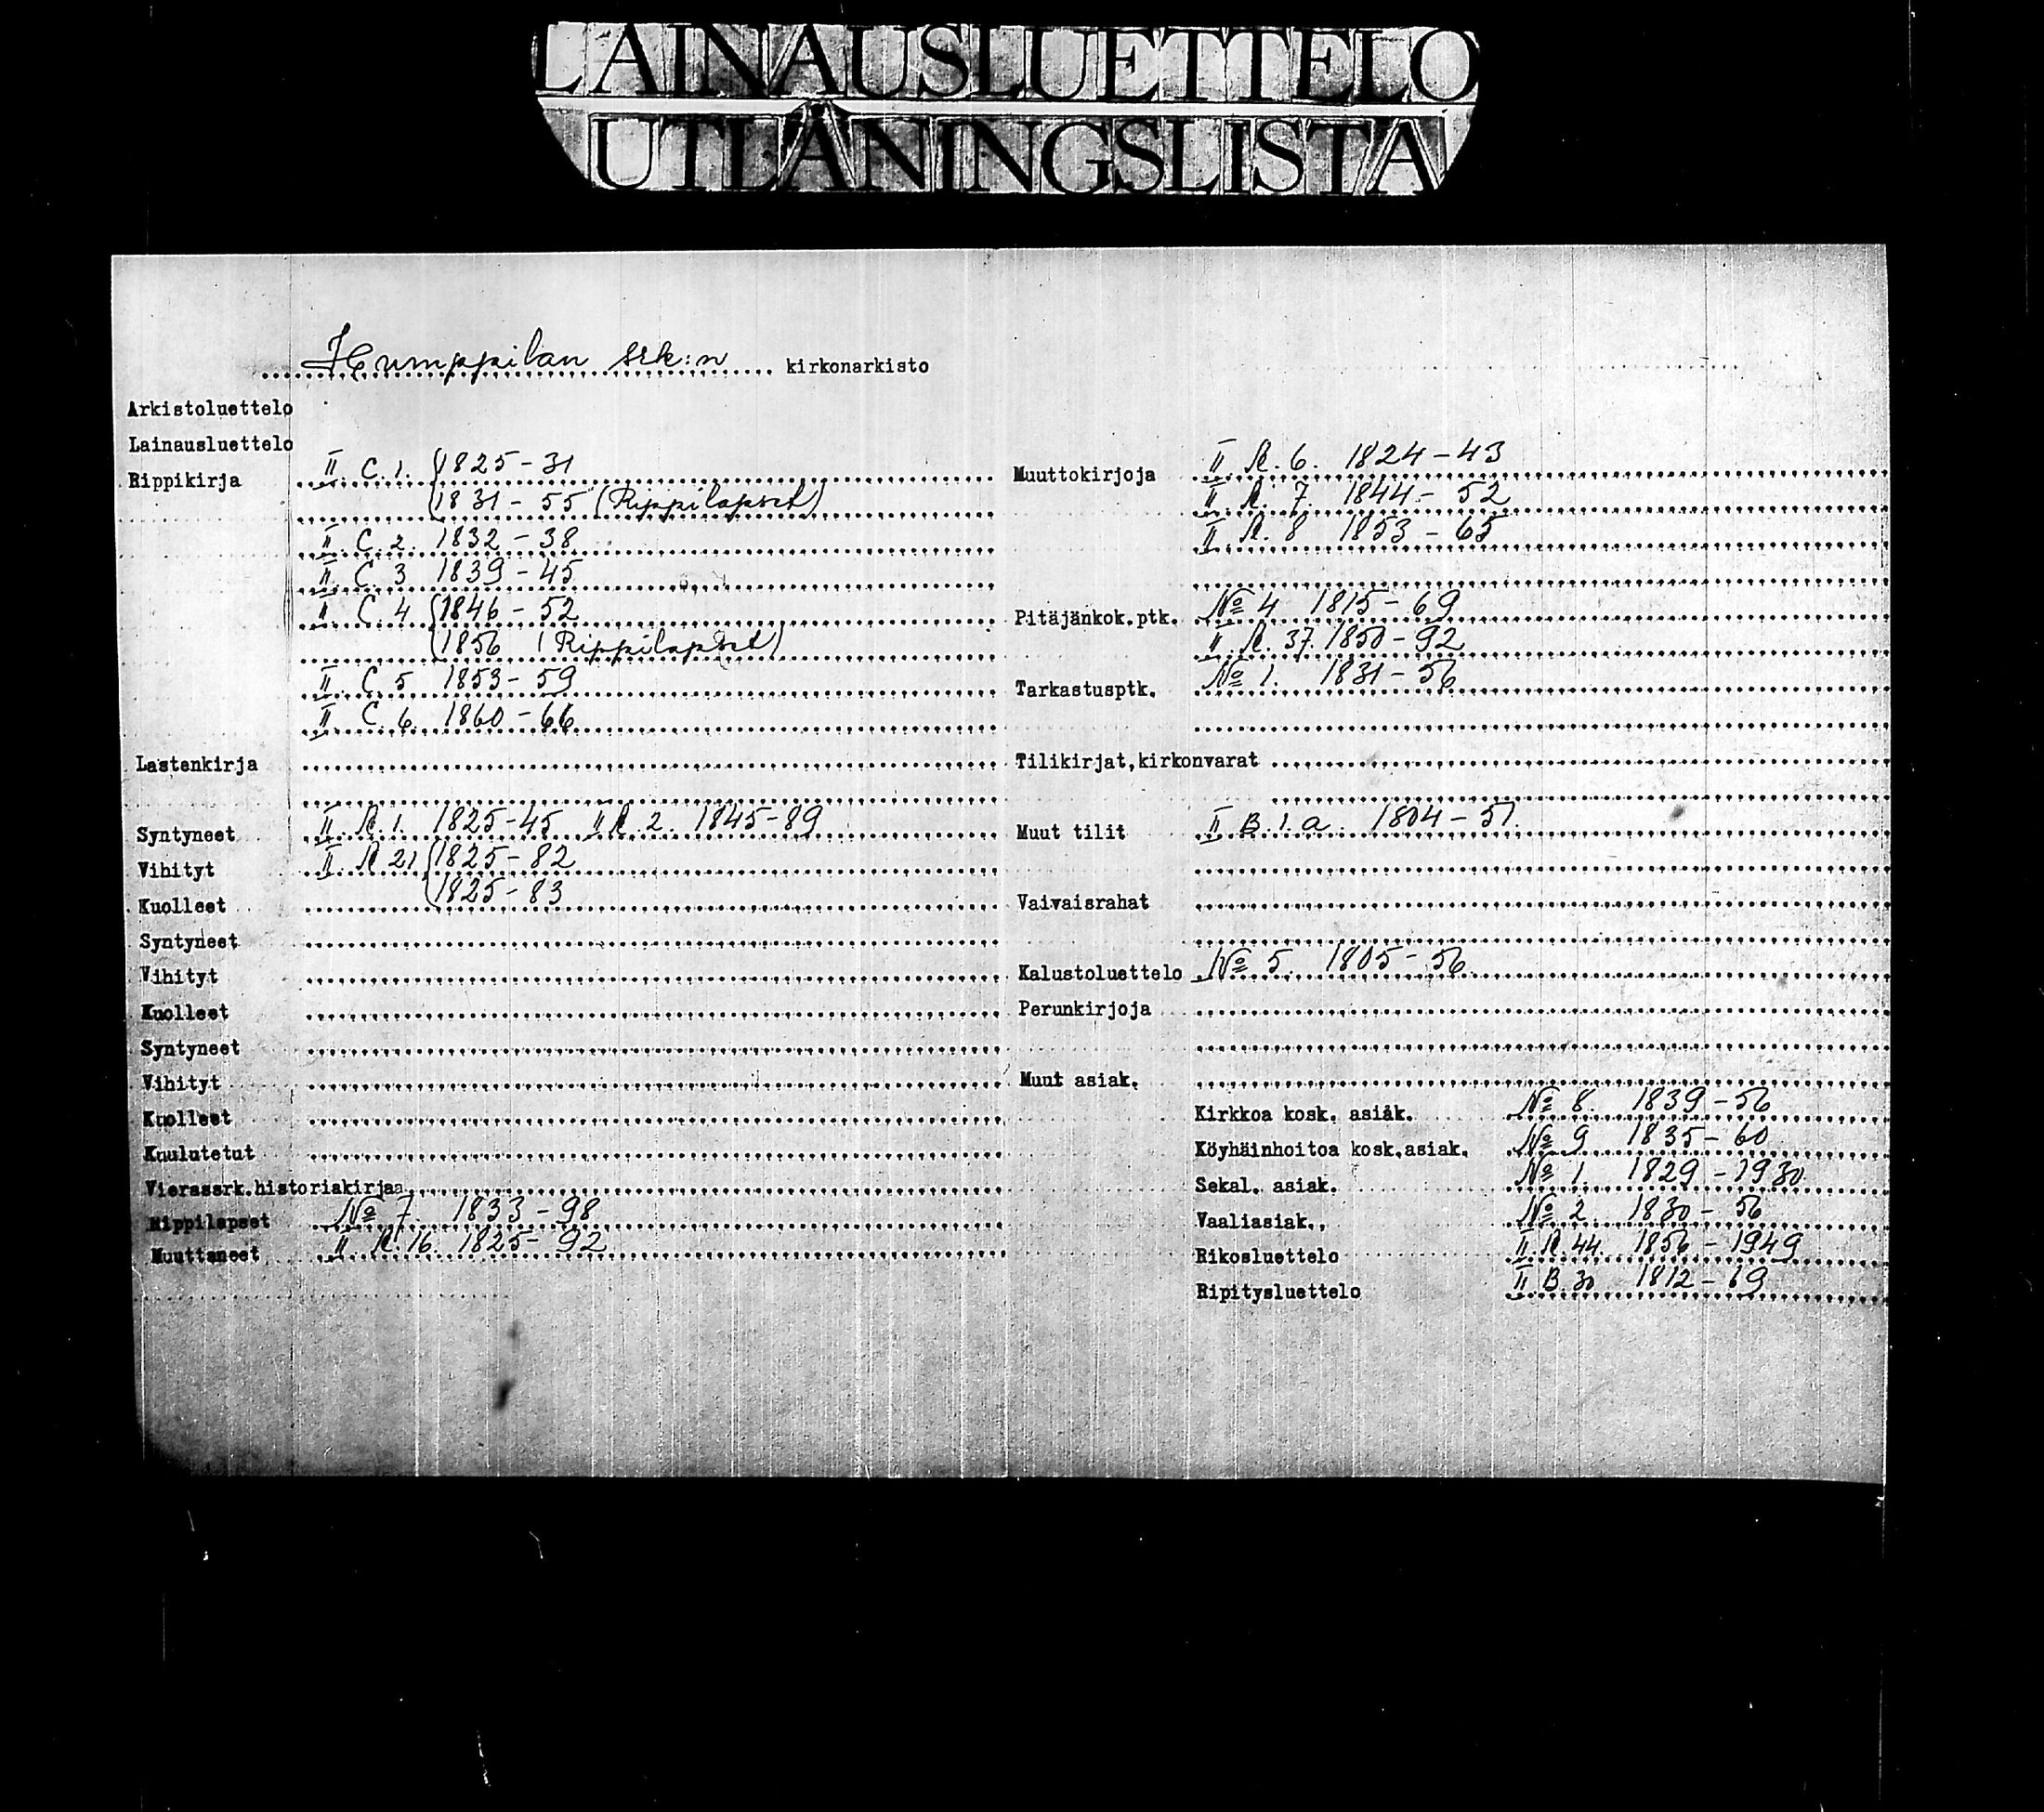 LAINAUSLUETTELO
UTLÅNINGSLISTA
Humppilan srk:n kirkonarkisto
Arkistoluettelo
Lainausluettelo
Rippikirja II. C. 1. 1825-31
1831 - 55 (Rippilapset)
II. C. 2. 1832 - 38
II. C. 3 1839 - 45
II. C. 4 1846 - 52
1856 (Rippilapset)
II. C. 5 1853 - 59
II. C. 6. 1860 - 66
Lastenkirja
Syntyneet II. R. 1. 1825-45 II R. 2. 1845-89
Vihityt II. R 21 1825-82
Kuolleet 1825-83
Syntyneet
Vihityt
Kuolleet
Syntyneet
Vihityt
Kuolleet
Kuulutetut
Vierassrk.historiakirjaa
Rippilapset No 7 1833-98
Muuttaneet II. R. 16. 1825-92
Muuttokirjoja II. R. 6. 1824-43
II. R. 7. 1844-52
II. R. 8 1853 - 65
Pitäjänkok.ptk. No 4 1815-69
II. R. 37. 1850-92
Tarkastusptk. No 1. 1831-56
Tilikirjat,kirkonvarat
Muut tilit II B. 1. a. 1804-51.
Vaivaisrahat
Kalustoluettelo No 5. 1805-56
Perunkirjoja
Muut asiak.
Kirkkoa kosk. asiak. No 8. 1839-56
Köyhäinhoitoa kosk.asiak. No 9 1835-60
Sekal. asiak. No 1. 1829-1930
Vaaliasiak. No 2. 1830-56
Rikosluettelo II. R. 44. 1856-1949
Ripitysluettelo II. B. 30 1812-69